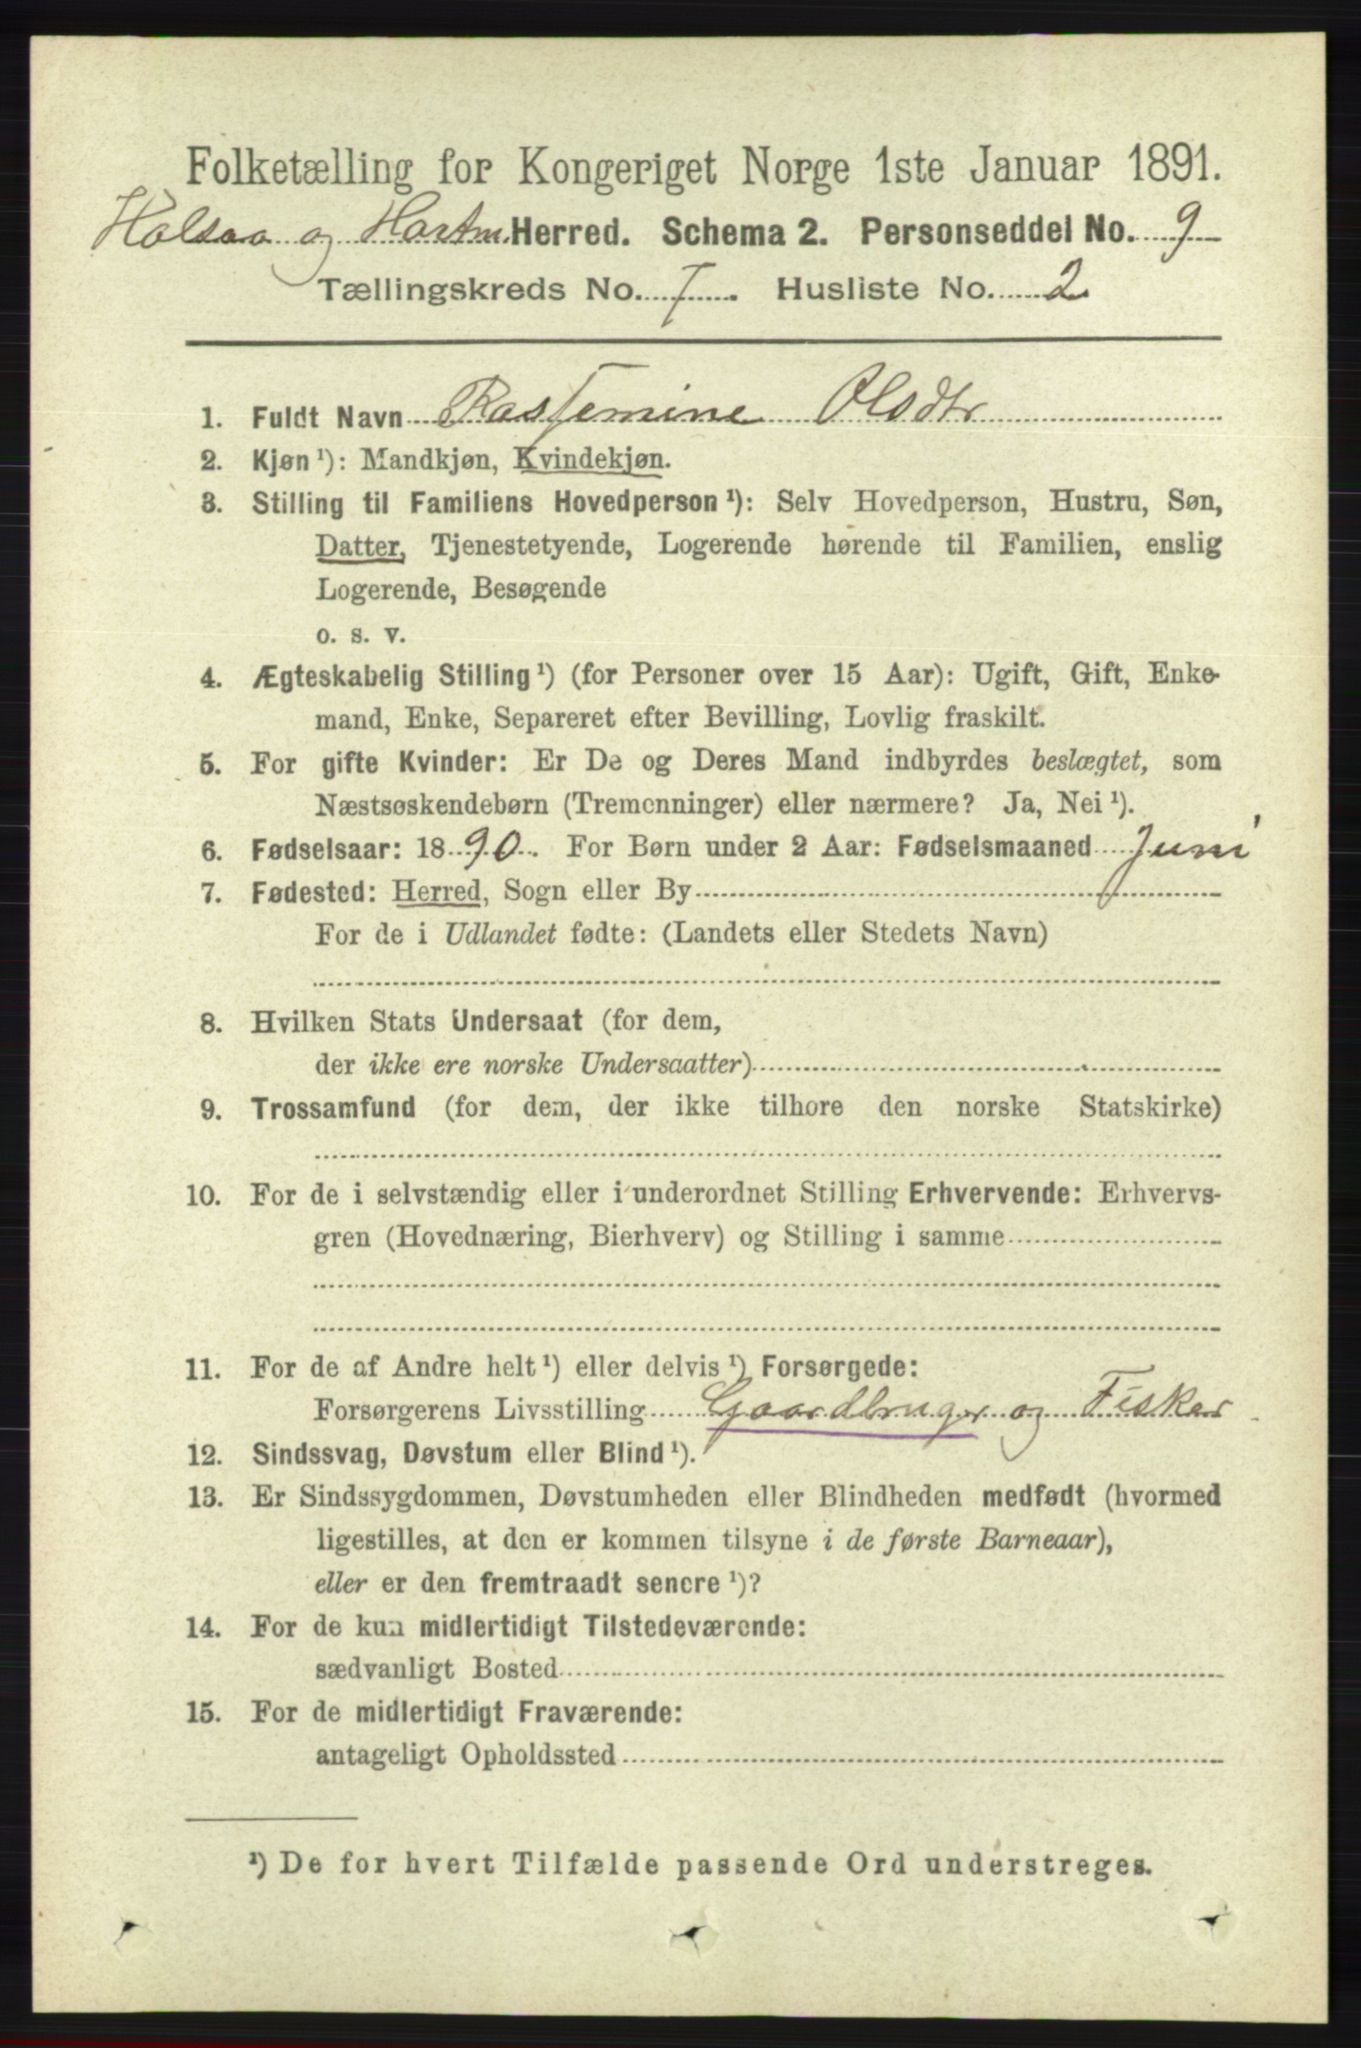 Folketælling for Kongeriget Norge 1ste Januar 1891.
Halsaa og Hartm. Herred. Schema 2. Personseddel No. 9
Tællingskreds No. 7. Husliste No. 2
1. Fuldt Navn Rasjemine Olsdtr
2. Kjøn ¹): Mandkjøn, Kvindekjøn.
3. Stilling til Familiens Hovedperson ¹): Selv Hovedperson, Hustru, Søn,
Datter, Tjenestetyende, Logerende hørende til Familien, enslig
Logerende, Besøgende
o. s. v.
4. Ægteskabelig Stilling ¹) (for Personer over 15 Aar): Ugift, Gift, Enke-
mand, Enke, Separeret efter Bevilling, Lovlig fraskilt.
5. For gifte Kvinder: Er De og Deres Mand indbyrdes beslægtet, som
Næstsøskendebørn (Tremenninger) eller nærmere? Ja, Nei ¹).
6. Fødselsaar: 1890. For Børn under 2 Aar: Fødselsmaaned Juni
7. Fødested: Herred, Sogn eller By
For de i Udlandet fødte: (Landets eller Stedets Navn)
8. Hvilken Stats Undersaat (for dem,
der ikke ere norske Undersaatter)
9. Trossamfund (for dem, der ikke tilhøre den norske Statskirke)
10. For de i selvstændig eller i underordnet Stilling Erhvervende: Erhvervs-
gren (Hovednæring, Bierhverv) og Stilling i samme
11. For de af Andre helt ¹) eller delvis ¹) Forsørgede:
Forsørgerens Livsstilling Gaardbruger og Fisker
12. Sindssvag, Døvstum eller Blind ¹).
13. Er Sindssygdommen, Døvstumheden eller Blindheden medfødt (hvormed
ligestilles, at den er kommen tilsyne i de første Barneaar),
eller er den fremtraadt senere ¹)?
14. For de kun midlertidigt Tilstedeværende:
sædvanligt Bosted
15. For de midlertidigt Fraværende:
antageligt Opholdssted
¹) De for hvert Tilfælde passende Ord understreges.